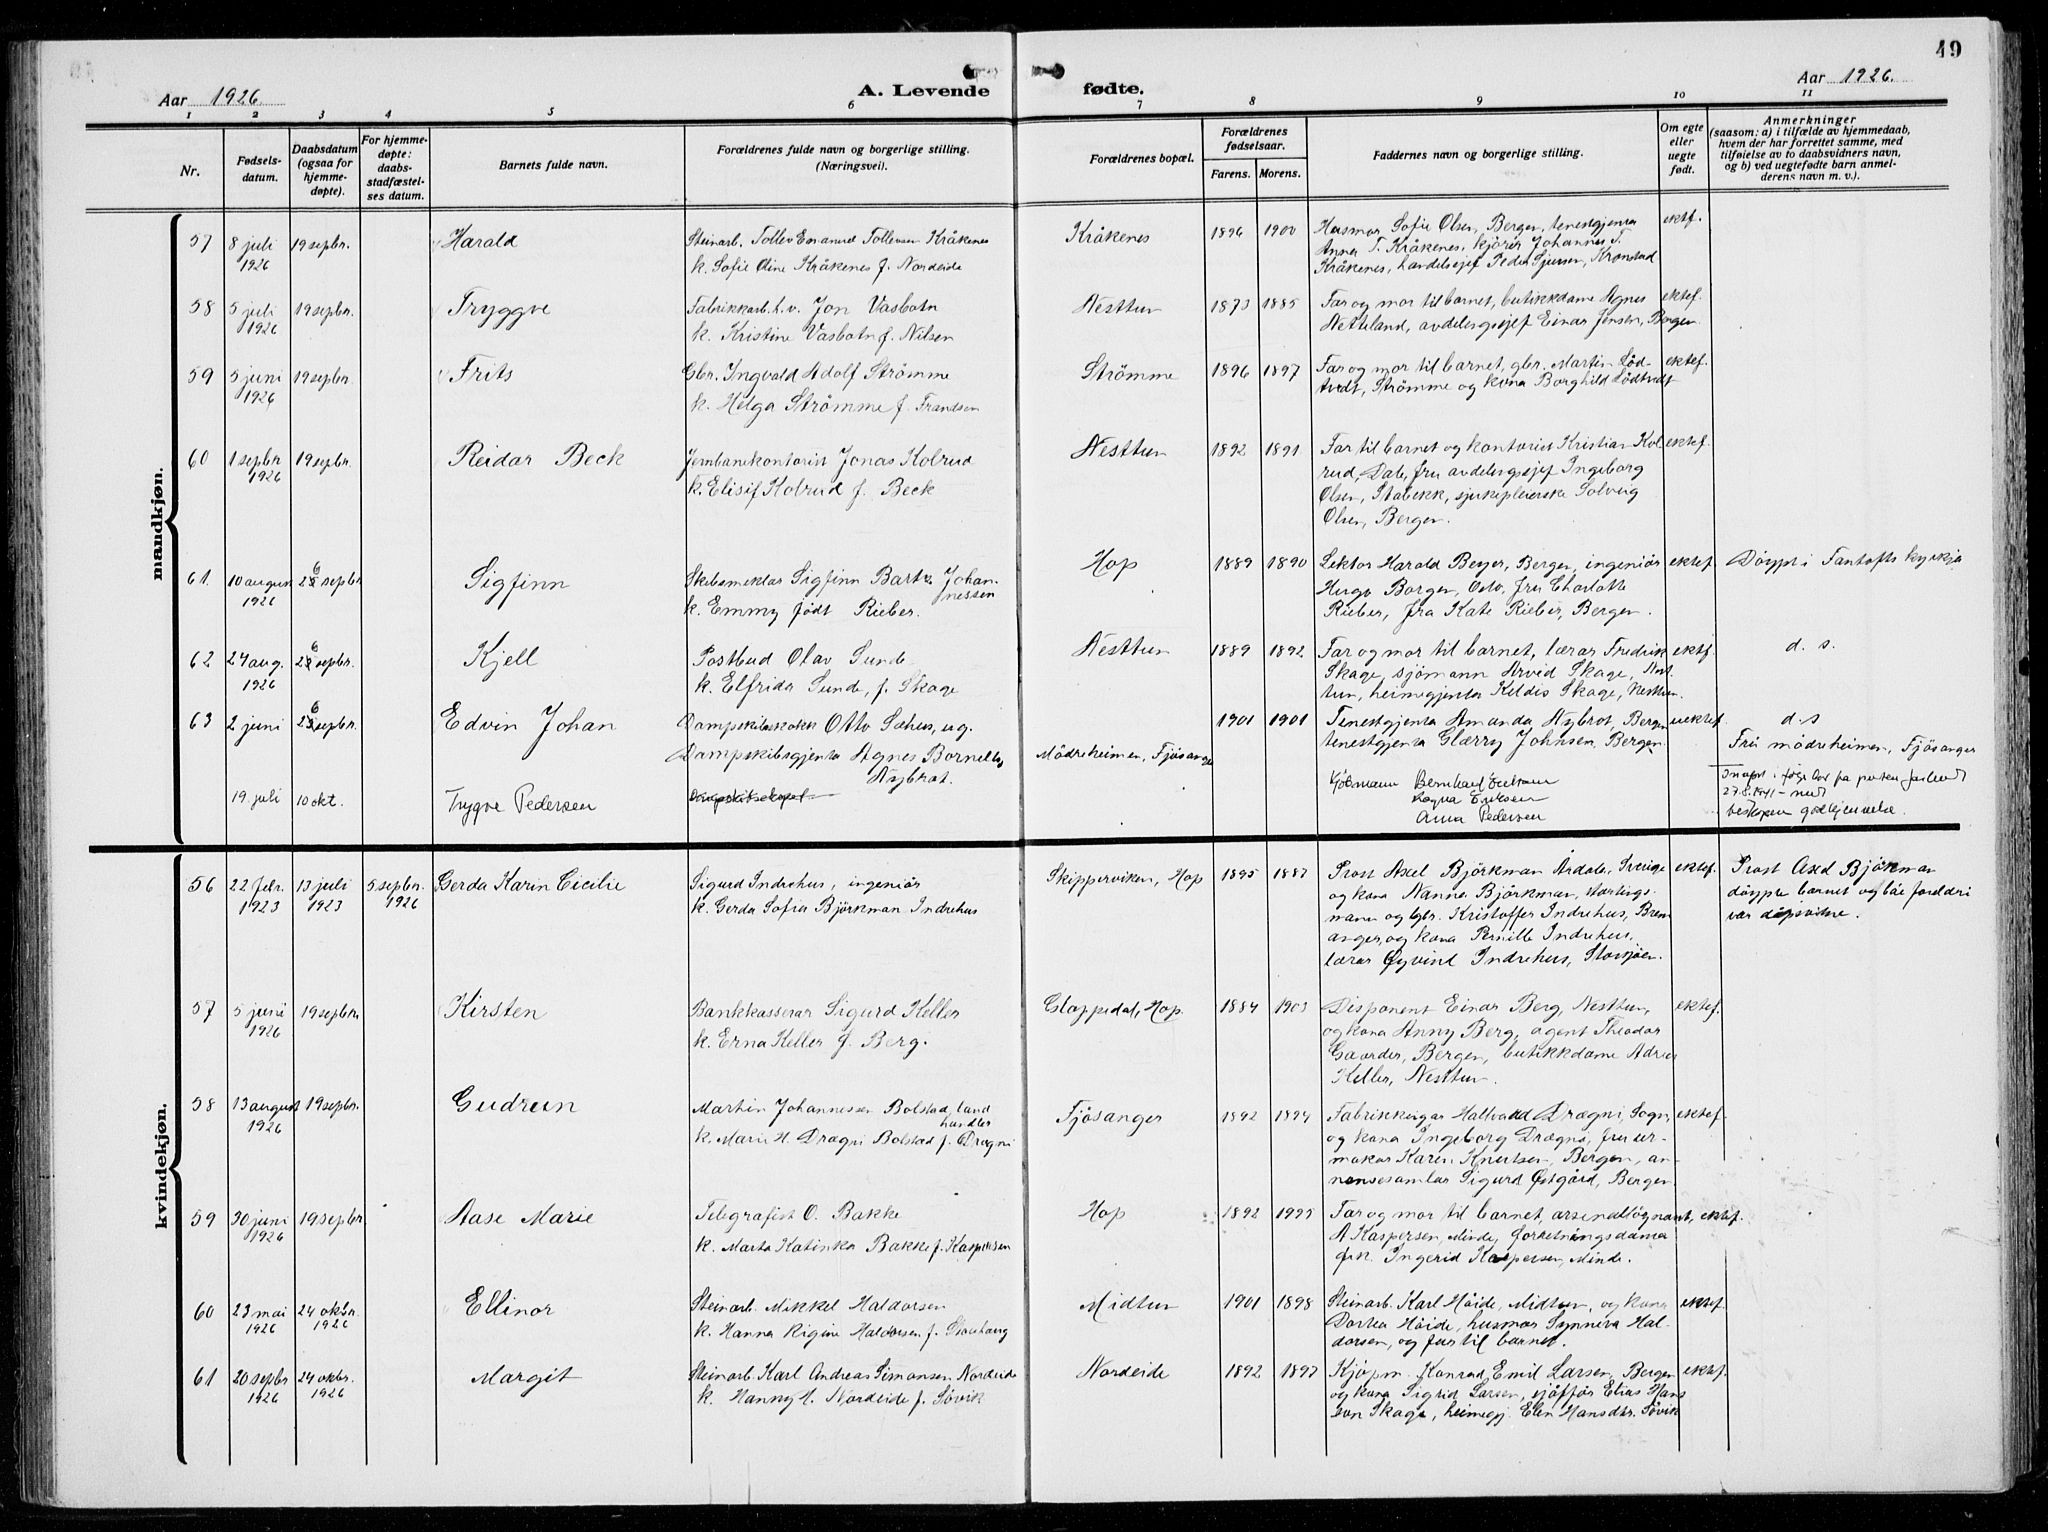 49
Aar 1926
A. Levende fødte.
Aar 1926.
1 2 3 4 5 6 7 8 9 10 11
Nr.
Fødsels-
datum.
Daabsdatum
(ogsaa for
hjemme-
døpte).
For hjemme-
døpte:
daabs-
stadfæstel-
ses datum.
Barnets fulde navn.
Forældrenes fulde navn og borgerlige stilling.
(Næringsveil).
Forældrenes bopæl.
Forældrenes
fødselsaar.
Farens. Morens.
Faddernes navn og borgerlige stilling.
Om egte
eller
uegte
født.
Anmerkninger
(saasom: a) i tilfælde av hjemmedaab,
hvem der har forrettet samme, med
tilføielse av to daabsvidners navn,
og b) ved uegtefødte barn anmel-
derens navn m. v.).
mandkjøn.
57 8 juli 1926 19 septbr. Harald
Steinarb. Tollev Emanuel Tollevsen Kråkenes
k. Sofie Oline Kråkenes f. Nordeide
Kråkenes 1896 1900
Husmor Sofie Olsen, Bergen, tenestgjenta
Anna T. Kråkenes, kjörer Johannes T.
Kråkenes, handelssjef Peder Sjursen, Kronstad
ektef.
58 5 juli 1926 19 septbr. Tryggve
Fabrikkarb. h.v. Jon Vasbotn
k. Kristine Vasbotn f. Nilsen
Nesttun 1873 1885
Far og mor til barnet, butikkdame Agnes
Netteland, avdelingssjef Einar Jensen, Bergen
ektef.
59 5 juni 1926 19 septbr. Frits
Gbr. Ingvald Adolf Strömme
k. Helga Strömme f. Frandsen
Strömme 1896 1897
Far og mor til barnet, gbr. Martin Löd-
tvedt, Strömme og kona Borghild Lödtvedt
ektef.
60 1 septbr 1926 19 septbr. Reidar Beck
Jernbanekontorist Jonas Kolrud
k. Elisif Kolrud f. Beck
Nesttun 1892 1891
Far til barnet og kontorist Kristian Kol-
rud, Dale, fru avdelingssjef Ingeborg
Olsen, Stabekk, sjukepleierske Solveig
Olsen, Bergen.
ektef.
61 10 august 1926 26 septbr Sigfinn
Skibsmeklar Sigfinn Bartz Johan-
nessen
k. Emmy født Rieber.
Hop 1889 1890
Lektor Harald Beyer, Bergen, ingeniör
Hugo Borgen, Oslo, fru Charlotte
Rieber, fru Kate Rieber, Bergen.
ektef. Döypt i Fantofts kyrkja
62 24 aug. 1926 26 septbr. Kjell
Postbud Olav Sunde
k. Elfrida Sunde, f. Skage
Nesttun 1889 1892
Far og mor til barnet, lærar Fredrik
Skage, sjömann Arvid Skage, Nest-
tun, heimegjenta Keldis Skage, Nesttun.
ektf. d. s.
63 2 juni 26 septbr. Edvin Johan
Dampskibskokk Otto Sæhus, ug.
Dampskibsgjenta Agnes Bornella
Nybrot.
Mödreheimen, Fjösanger 1901 1901
Tenestgjenta Amanda Nybrot, Bergen
tenestgjenta Glærry Johnsen, Bergen.
uektef. d. s
Frå mödreheimen, Fjösanger
19. juli 10 okt. Trygve Pedersen
Bernhard Eriksen
Ragna Eriksen
Anna Pedersen
27.8.1941 - med
kvindekjøn.
56 22 febr. 1923 13 juli 1923 5 septbr. 1926 Gerda Karin Cicilie
Sigurd Indrehus, ingeniör
k. Gerda Sofia Björkman Indrehus
Skipperviken, Hop 1895 1887
Prost Axel Björkman Årdala, Sverige
og kona Nanna Björkman, nærings-
mann og gbr. Kristoffer Indrehus, Brem
anger, og kona Pernille Indrehus,
lærar Øyvind Indrehus, Storsjöen.
ektef.
Prost Axel Björkman
döypte barnet og båe foreldri
var dåpsvitne.
57 5 juni 1926 19 septbr. Kirsten
Bankkasserar Sigurd Keller
k. Erna Keller f. Berg.
Gloppedal, Hop. 1884 1903
Disponent Einar Berg, Nesttun,
og kona Anny Berg, agent Theodor
Gaarder, Bergen, butikkdame
Keller, Nesttun.
ektef.
58 13 august 1926 19 septbr. Gudrun
Martin Johannesen Bolstad, land
handler
k. Marie H. Drægni Bolstad f. Drægni
Fjösanger 1892 1894
Fabrikkeigar Hallvard Drægni, Sogn,
og kona Ingeborg Drægni, fru ur-
makar Karen Knutsen, Bergen, an-
nonsesamlar Sigurd Østgård, Bergen
ektef.
59 30 juni 1926 19 septbr. Aase Marie
Telegrafist O. Bakke
k. Marta Katinka Bakke f. Kaspersen
Hop 1892 1995
Far og mor til barnet, arsenallögnant,
A Kaspersen, Minde, forretningsdama
frk. Ingerid Kaspersen, Minde.
ektef.
60 23 mai 1926 24 oktbr. 1926 Ellinor
Steinarb. Mikkel Haldorsen
k. Hanna Rigine Haldorsen f.
Midtun 1901 1898
Steinarb. Karl Höide, Midtun, og kona
Dortea Höide, husmor Synneva Hal-
dorsen, og far til barnet.
ektef.
61 20 septbr 1926 24 oktbr. 1926 Margit
Steinarb. Karl Andreas Simonsen Nordeide
k. Hanny H. Nordeide f. Sövik
Nordeide 1892 1897
Kjöpm. Konrad Emil Larsen, Bergen
og kona Sigrid Larsen, sjåfför Elias Hans
son Skage, heimegj. Elen Hansdtr. Sövik
ektef.